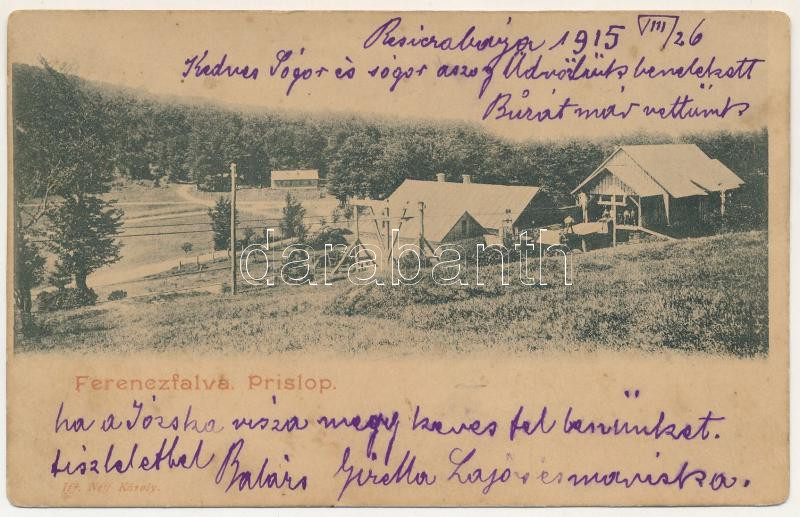 Resiczabánya 1915 VIII/26
Kedves Sógor és sógor aszoy Üdvözlünk benelekett
Búzát már vettünk
darabanth
Ferenczfalva. Prislop.
ha a Józska visza megy keves fel benünket.
tiszletettel Balázs Gizella Lajos és mariska.
Ifj. Neff Károly.